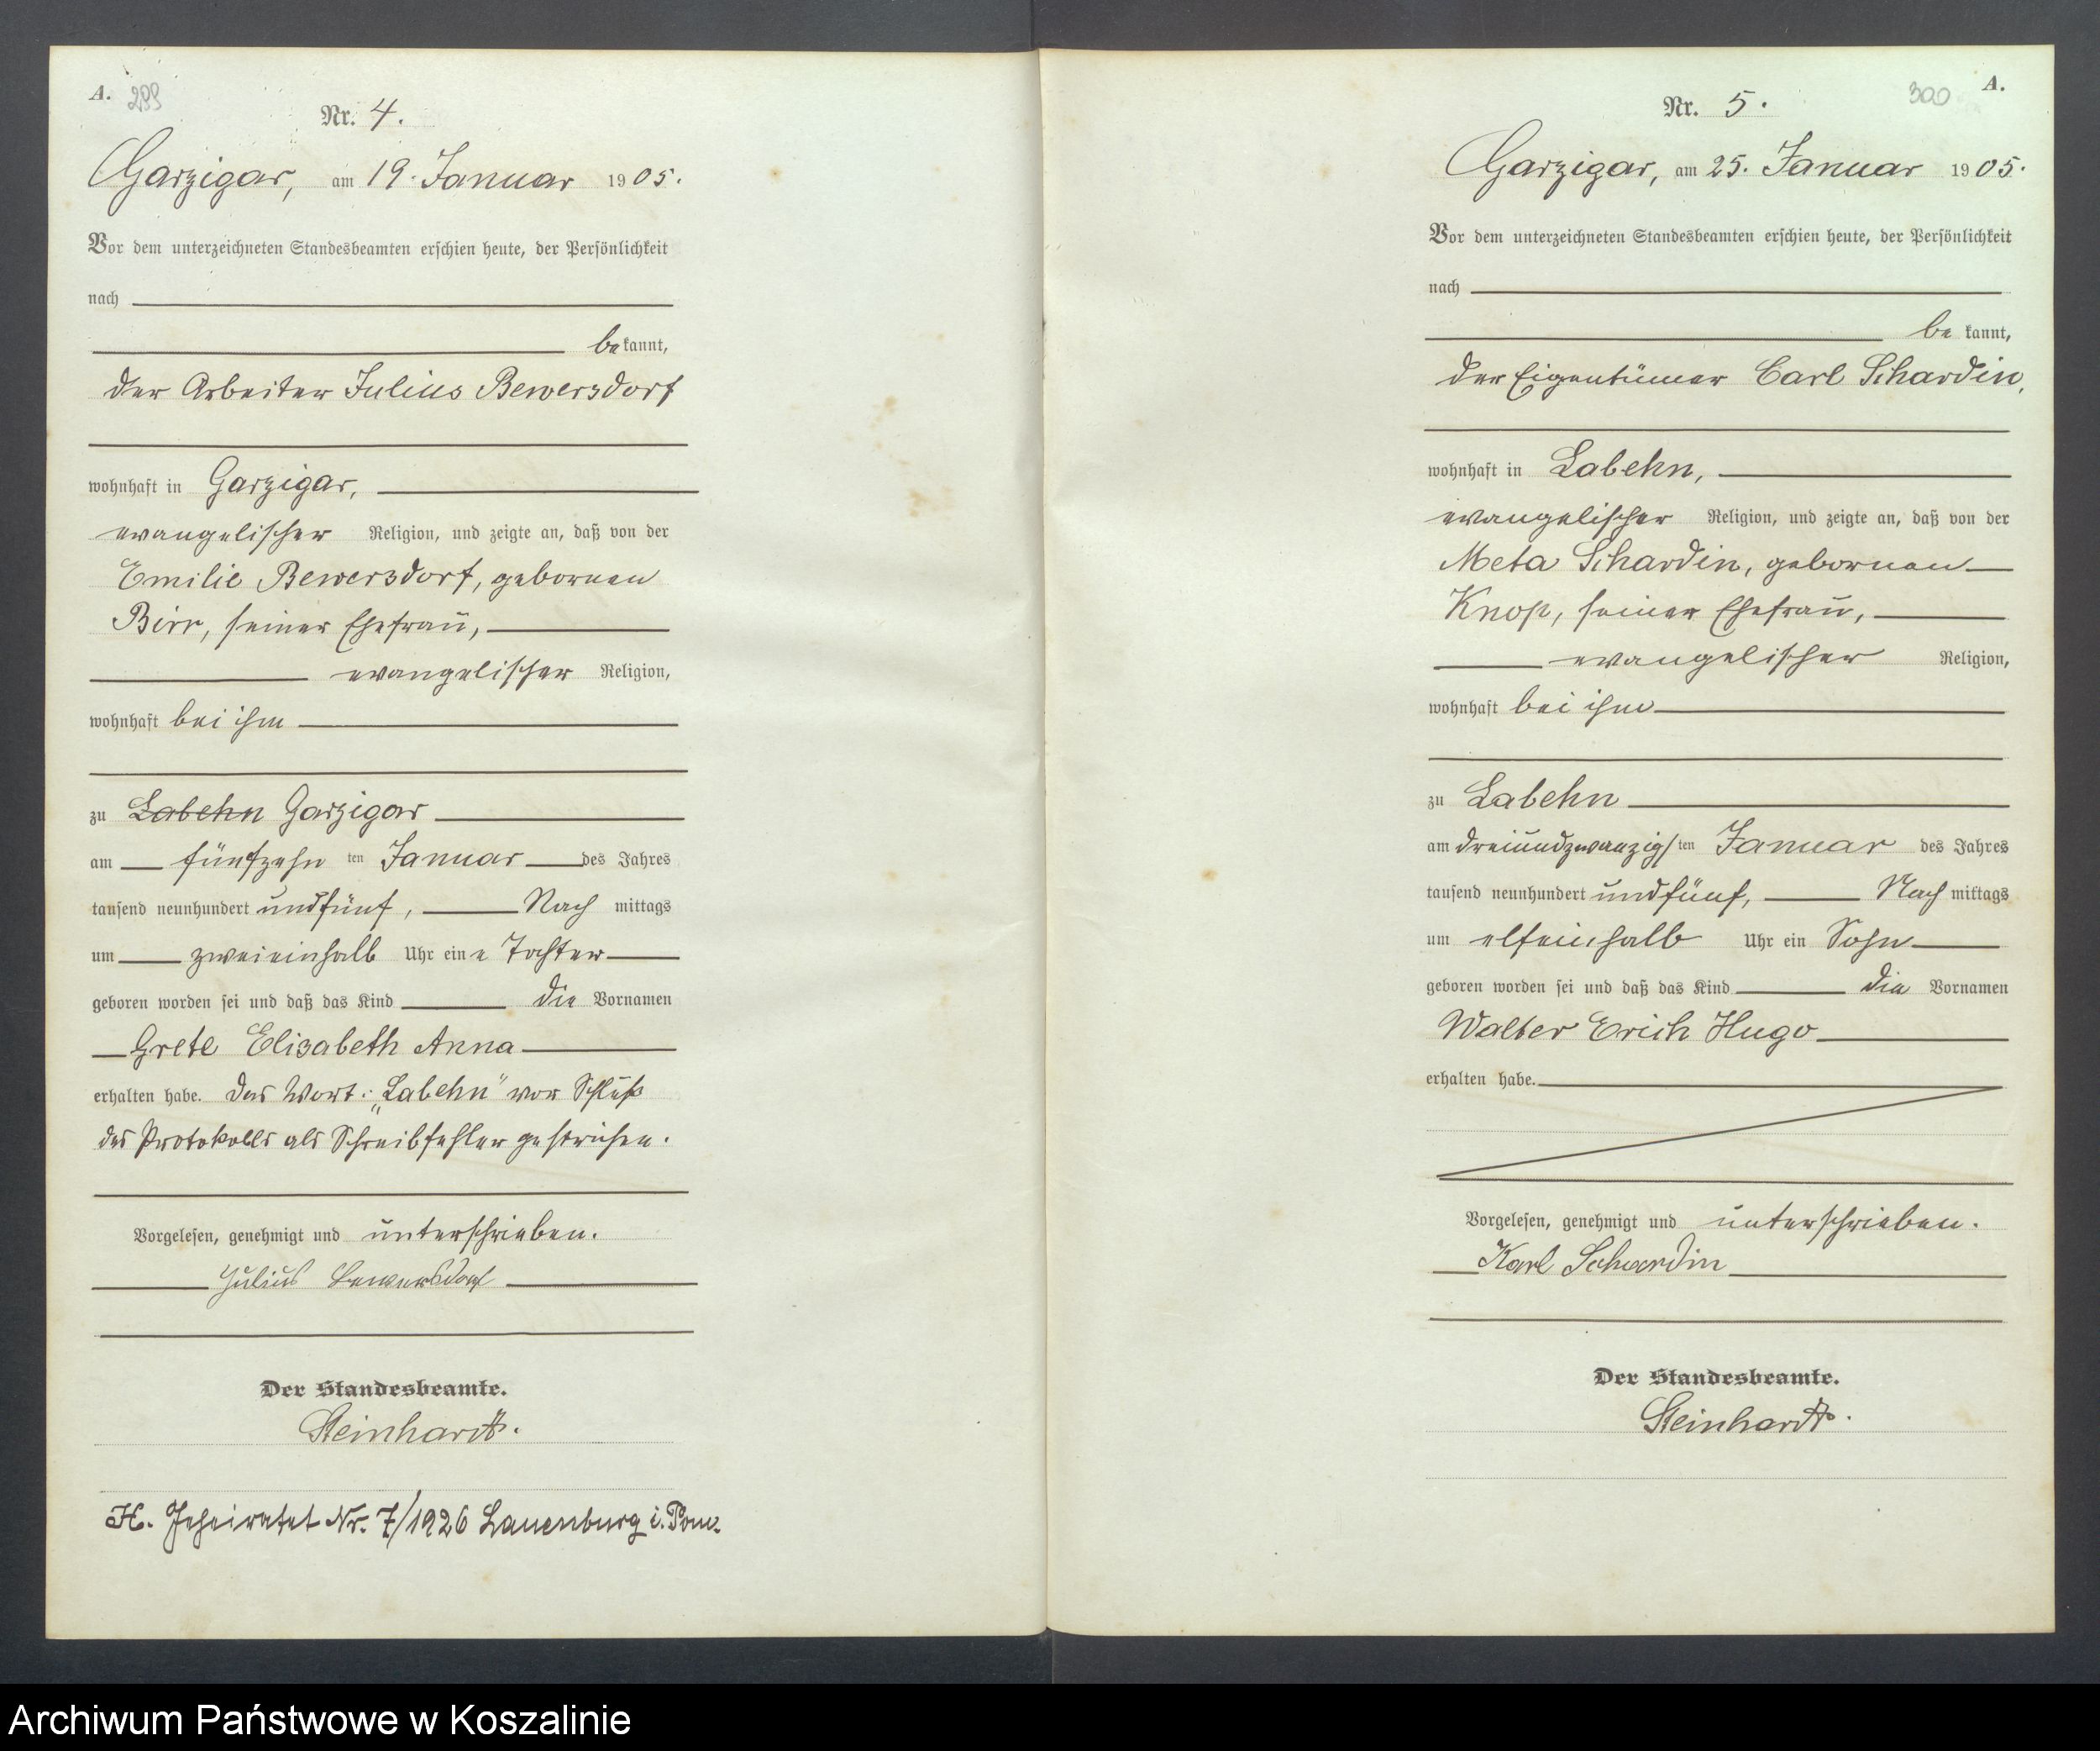 A. 299
Nr. 4.
Garzigar, am 19. Januar 1905.
Vor dem unterzeichneten Standesbeamten erschien heute, der Persönlichkeit
nach
bekannt,
der Arbeiter Julius Bewersdorf
wohnhaft in Garzigar,
evangelischer Religion, und zeigte an, daß von der
Emilie Bewersdorf, geborenen
Birr, seiner Ehefrau,
evangelischer Religion,
wohnhaft bei ihm
zu Labehn Garzigar
am fünfzehn ten Januar des Jahres
tausend neunhundert undfünf, Nach mittags
um zweieinhalb Uhr eine Tochter
geboren worden sei und daß das Kind die Vornamen
Grete Elisabeth Anna
erhalten habe. Das Wort: „Labehn" vor Schluß
des Protokolls als Schreibfehler gestrichen.
Vorgelesen, genehmigt und unterschrieben.
Julius Bewersdorf
Der Standesbeamte.
Steinhardt.
H. Geheiratet Nr. 7/1926 Lauenburg i. Pom.
300 A.
Nr. 5.
Garzigar, am 25. Januar 1905.
Vor dem unterzeichneten Standesbeamten erschien heute, der Persönlichkeit
nach
be kannt,
der Eigentümer Carl Schardin,
wohnhaft in Labehn,
evangelischer Religion, und zeigte an, daß von der
Meta Schardin, geborenen
Knop, seiner Ehefrau,
evangelischer Religion,
wohnhaft bei ihm
zu Labehn
am dreiundzwanzigsten Januar des Jahres
tausend neunhundert undfünf, Nach mittags
um elfeinhalb Uhr ein Sohn
geboren worden sei und daß das Kind die Vornamen
Walter Erich Hugo
erhalten habe.
Vorgelesen, genehmigt und unterschrieben.
Karl Schardin
Der Standesbeamte.
Steinhardt.
Archiwum Państwowe w Koszalinie